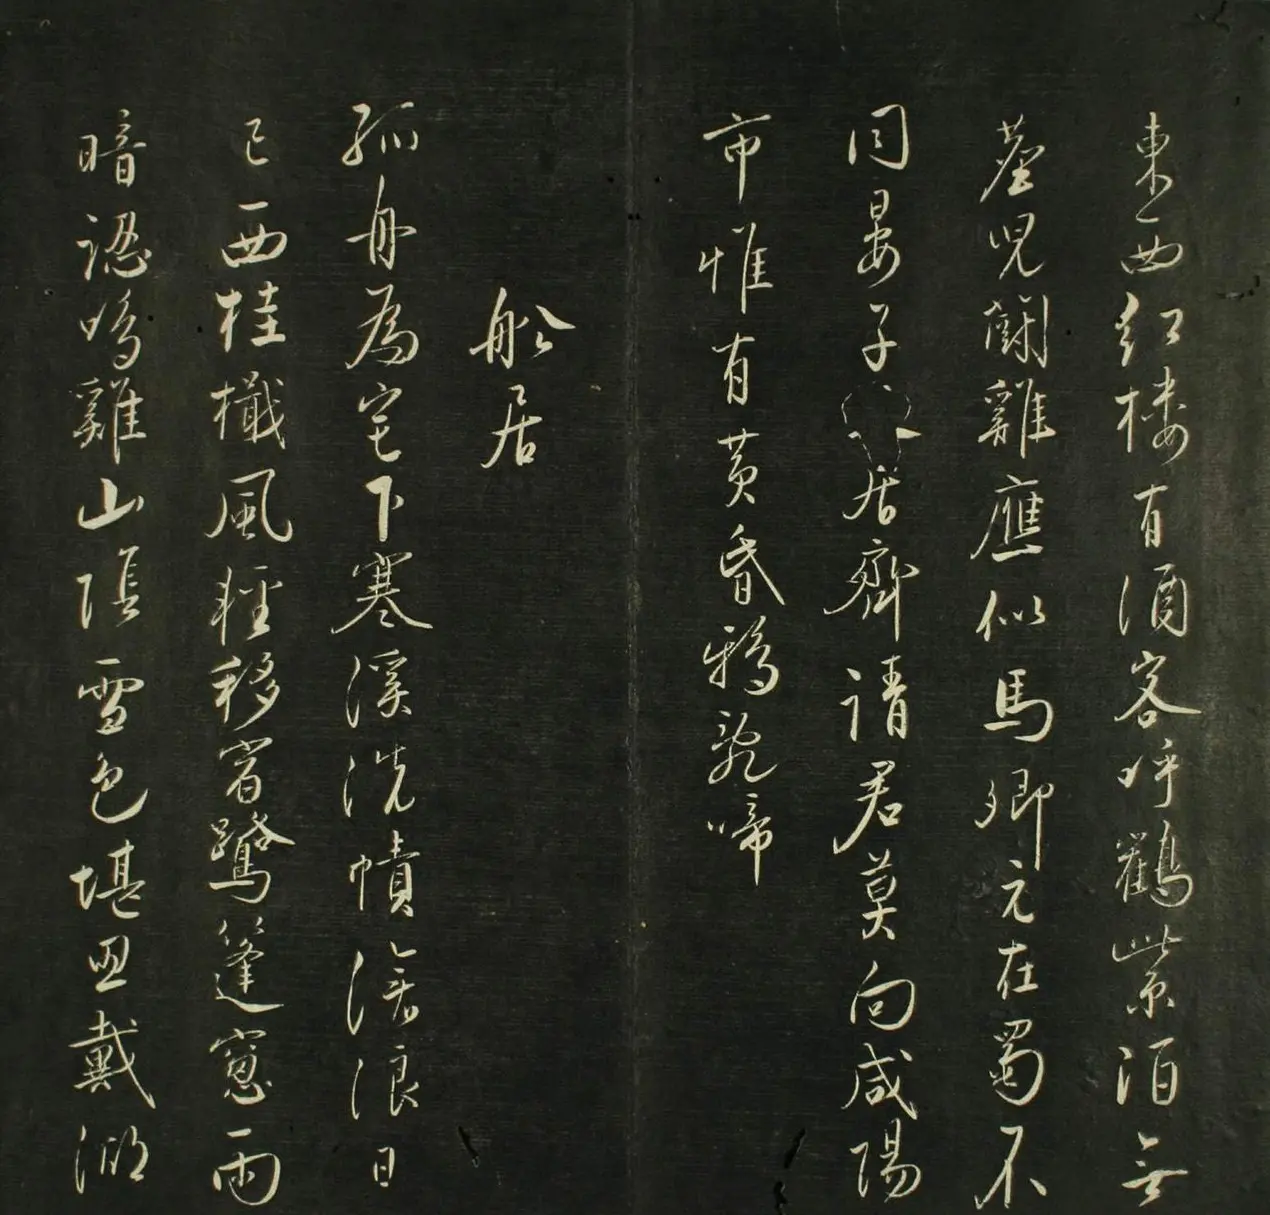 東西紅樓有酒客呼鸛紫陌無
塵兒鬪雞應似馬卿元在蜀不
同晏子居齊請君莫向咸陽
市惟有黃昏鴉亂啼
船居
孤舟為宅下寒溪洗幘滄浪日
已西桂檝風輕移宿鷺篷窻雨
暗認鳴雞山陰雪色堪思戴湖